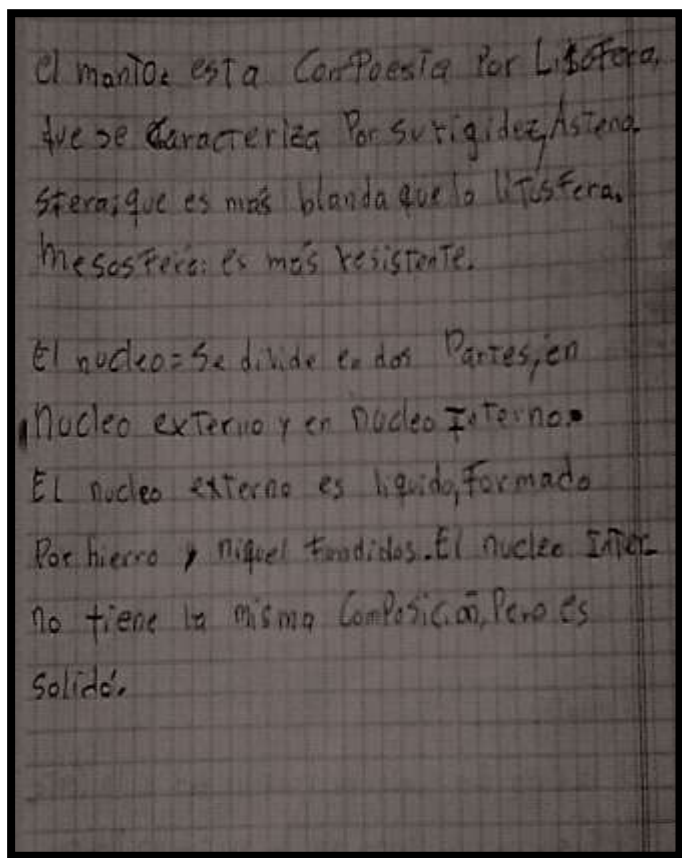 El manto: esta Compoesta Por Litofera,
que se Caracteriza Por su rigidez, Asteno
sfera; que es más blanda que la litosfera.
Mesosfera: es más resistente.
El nucleo = Se divide en dos Partes, en
nucleo externo y en nucleo Interno.
EL nucleo externo es liquido, formado
Por hierro y niquel fundidos. El nucleo Inter-
no tiene la misma Composición, Pero es
solido.